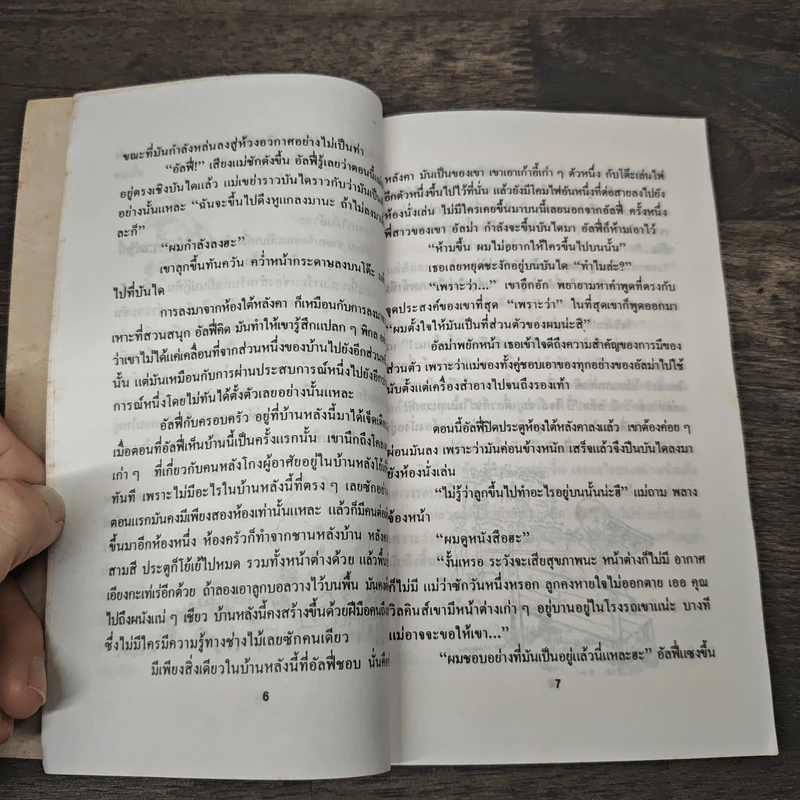 ขณะที่มันกำลังหล่นลงสู่ห้วงอวกาศอย่างไม่เป็นท่า
“อัลฟี่!” เสียงแม่ชักดังขึ้น อัลฟี่รู้เลยว่าตอนนี้แม่
อยู่ตรงเชิงบันไดแล้ว แม่เขย่าราวบันไดราวกับว่ามันเป็น
อย่างนั้นแหละ “ฉันจะขึ้นไปดึงหูแกลงมานะ ถ้าไม่ลงมา
ละก็”
“ผมกำลังลงฮะ”
เขาลุกขึ้นทันควัน คว่ำหน้ากระดาษลงบนโต๊ะ
ไปที่บันได
การลงมาจากห้องใต้หลังคา ก็เหมือนกับการลงมา
เหาะที่สวนสนุก อัลฟี่คิด มันทำให้เขารู้สึกแปลก ๆ พิกล
ว่าเขาไม่ได้แค่เคลื่อนที่จากส่วนหนึ่งของบ้านไปยังอีกส่วน
นั้น แต่มันเหมือนกับการผ่านประสบการณ์หนึ่งไปยังอีก
การณ์หนึ่งโดยไม่ทันได้ตั้งตัวเลยอย่างนั้นแหละ
อัลฟี่กับครอบครัว อยู่ที่บ้านหลังนี้มาได้เจ็ดเดือน
เมื่อตอนที่อัลฟี่เห็นบ้านนี้เป็นครั้งแรกนั้น เขานึกถึง
เก่า ๆ ที่เกี่ยวกับคนหลังโกงผู้อาศัยอยู่ในบ้านหลังโย้
ทันที เพราะไม่มีอะไรในบ้านหลังนี้ที่ตรง ๆ เลยซักอย่าง
ตอนแรกมันคงมีเพียงสองห้องเท่านั้นแหละ แล้วก็มีคน
ขึ้นมาอีกห้องหนึ่ง ห้องครัวก็ทำจากชานหลังบ้าน หลังคา
สามสี ประตูก็โย้เย้ไปหมด รวมทั้งหน้าต่างด้วย แล้วพื้น
เอียงกะเท่เร่อีกด้วย ถ้าลองเอาลูกบอลวางไว้บนพื้น มันคง
ไปถึงผนังแน่ ๆ เชียว บ้านหลังนี้คงสร้างขึ้นด้วยฝีมือคน
ซึ่งไม่มีใครมีความรู้ทางช่างไม้เลยซักคนเดียว
มีเพียงสิ่งเดียวในบ้านหลังนี้ที่อัลฟี่ชอบ นั่นคือ
6
หลังคา มันเป็นของเขา เขาเอาเก้าอี้เก่า ๆ ตัวหนึ่ง กับโต๊ะเล่นไพ่
อีกตัวหนึ่งขึ้นไปไว้ที่นั่น แล้วยังมีโคมไฟอันหนึ่งที่ต่อสายลงไปยัง
ห้องนั่งเล่น ไม่มีใครเคยขึ้นมาบนนี้เลยนอกจากอัลฟี่ ครั้งหนึ่ง
พี่สาวของเขา อัลม่า กำลังจะขึ้นบันไดมา อัลฟี่ก็ห้ามเอาไว้
“ห้ามขึ้น ผมไม่อยากให้ใครขึ้นไปบนนั้น”
เธอเลยหยุดชะงักอยู่บนบันได “ทำไมล่ะ?”
“เพราะว่า...” เขาอึกอัก พยายามหาคำพูดที่ตรงกับ
จุดประสงค์ของเขาที่สุด “เพราะว่า” ในที่สุดเขาก็พูดออกมา
“ผมตั้งใจให้มันเป็นที่ส่วนตัวของผมน่ะสิ”
อัลม่าพยักหน้า เธอเข้าใจดีถึงความสำคัญของการมีของ
ส่วนตัว เพราะว่าแม่ของทั้งคู่ชอบเอาของทุกอย่างของอัลม่าไปใช้
นับตั้งแต่เครื่องสำอางไปจนถึงรองเท้า
ตอนนี้อัลฟี่ปิดประตูห้องใต้หลังคาลงแล้ว เขาต้องค่อย ๆ
ผ่อนมันลง เพราะว่ามันค่อนข้างหนัก เสร็จแล้วจึงปีนบันไดลงมา
ยังห้องนั่งเล่น
“ไม่รู้ว่าลูกขึ้นไปทำอะไรอยู่บนนั้นน่ะฮึ” แม่ถาม พลาง
จ้องหน้า
“ผมดูหนังสือฮะ”
“งั้นเหรอ ระวังจะเสียสุขภาพนะ หน้าต่างก็ไม่มี อากาศ
ก็ไม่มี แม่ว่าซักวันหนึ่งหรอก ลูกคงหายใจไม่ออกตาย เออ คุณ
วิลคินส์เขามีหน้าต่างเก่า ๆ อยู่บานอยู่ในโรงรถเขาแน่ะ บางที
แม่อาจจะขอให้เขา...”
“ผมชอบอย่างที่มันเป็นอยู่แล้วนี่แหละฮะ” อัลฟี่แซงขึ้น
7